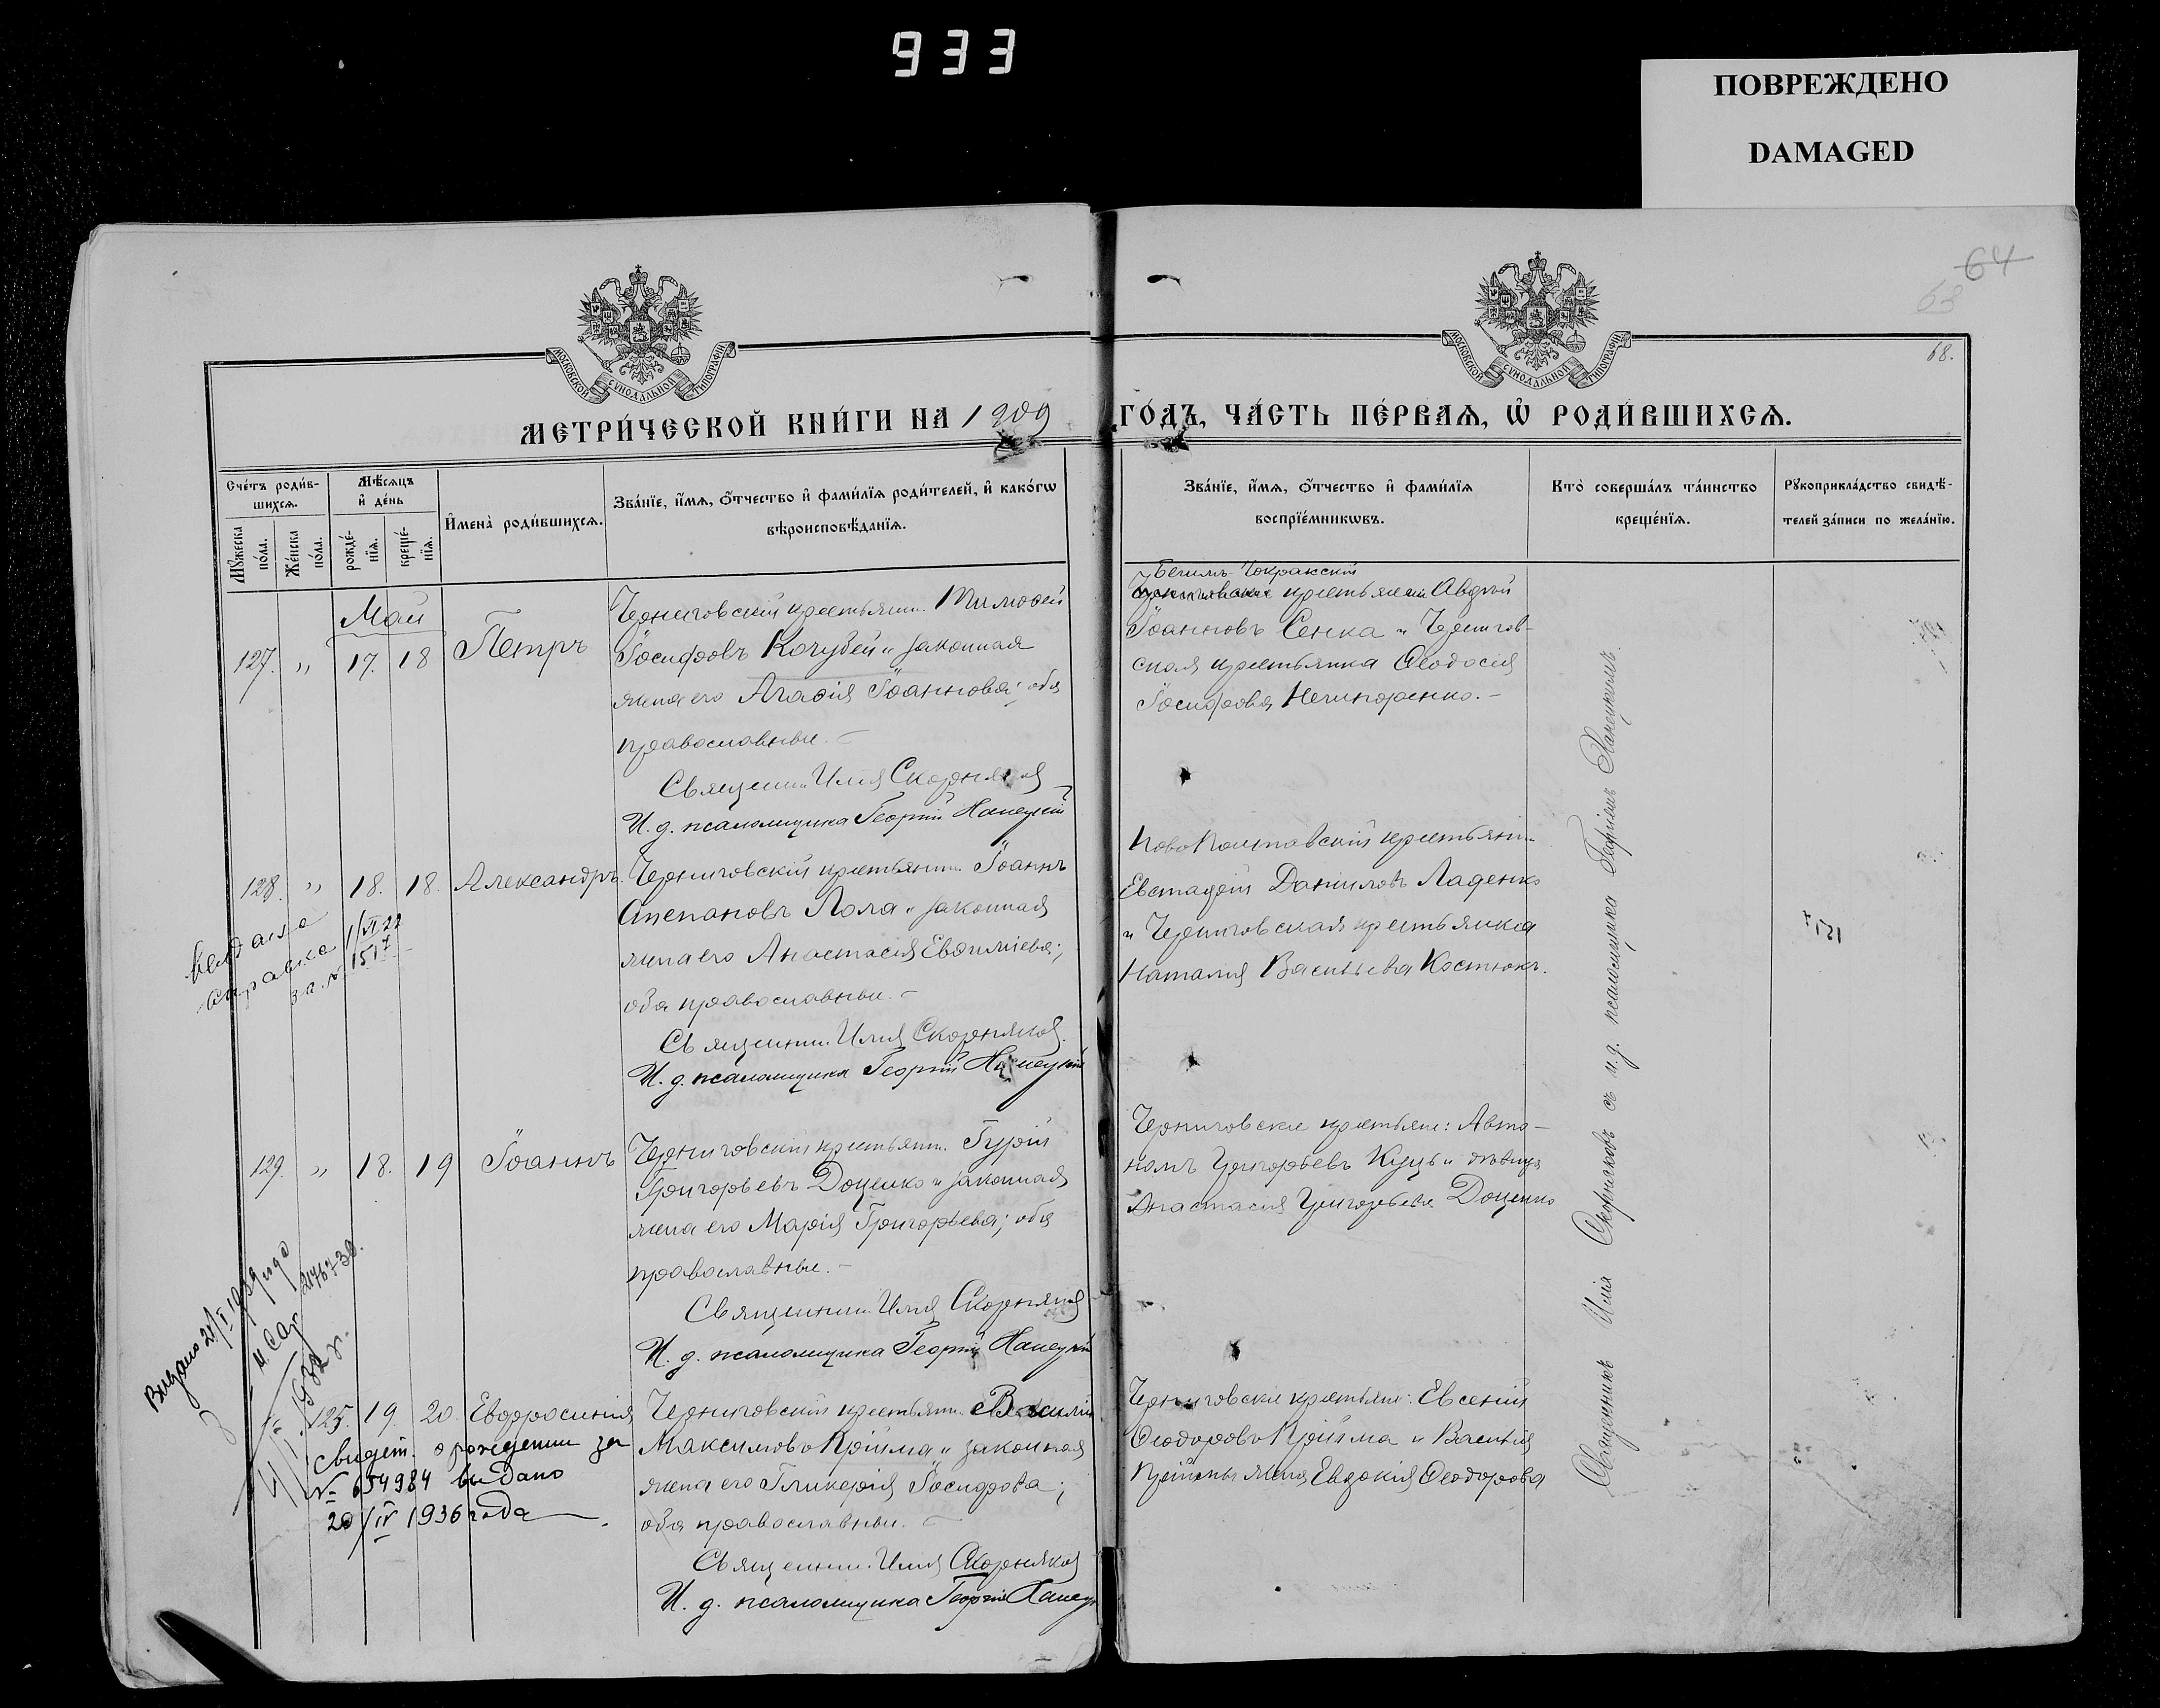 933
ПОВРЕЖДЕНО
DAMAGED
64
63
68.
МОСКОВСКОЙ СѴНОДАЛЬНОЙ ТИПОГРАФІИ
МОСКОВСКОЙ СѴНОДАЛЬНОЙ ТИПОГРАФІИ
МЕТРИ́ЧЕСКОЙ КНИ́ГИ НА 1909 ГО́ДЪ, ЧА́СТЬ ПЕ́РВАѦ, Ѽ РОДИ́ВШИХСѦ.
Сче́тъ роди́в-
шихсѧ.
Мꙋ́жеска
по́ла.
Же́нска
по́ла.
Мѣ́сѧцъ
и҆ де́нь
рожде́-
нїѧ.
креще́-
нїѧ.
И҆мена̀ роди́вшихсѧ.
Зва́нїе, и҆́мѧ, ѻ҆́тчество и҆ фами́лїѧ роди́телей, и҆ како́гѡ
вѣроисповѣ́данїѧ.
Зва́нїе, и҆́мѧ, ѻ҆́тчество и҆ фами́лїѧ
воспрїе́мникѡвъ.
Кто̀ соверша́лъ та́инство
креще́нїѧ.
Рꙋкоприкла́дство свидѣ́-
телей за́писи по жела́нїю.
Май
127. " 17. 18 Петръ
Черниговскій крестьянин. Тимофей
Іосифовъ Кочубей и законная
жена его Агафія Іоаннова; оба
православные. –
Священн. Илія Скорняков
И. д. псаломщика Георгій Ханецкій
Бегимъ-Чокракскій
крестьянин Авдій
Іоанновъ Сенка и Чернигов-
ская крестьянка Феодосія
Іосифова Нечипоренко. –
128. " 18. 18. Александръ.
Черниговскій крестьянин. Іоаннъ
Степановъ Лола и законная
жена его Анастасія Евфиміева;
оба православные. –
Священник. Илія Скорняков.
И. д. псаломщика Георгій Ханецкій
Новополтавскій крестьянин.
Евстафій Даниловъ Ладенко
и Черниговская крестьянка
Наталія Васильева Костюкъ.
Выдана
справка 1/VI 22
за № 1517
129. " 18. 19 Іоаннъ
Черниговскій крестьянин. Гурій
Григорьевъ Доценко и законная
жена его Марія Григорьева; оба
православные. –
Священник. Илія Скорняков
И. д. псаломщика Георгій Ханецкій
Черниговскіе крестьяне: Авто-
номъ Григорьевъ Куцъ и дѣвица
Анастасія Григорьева Доценко
" 125. 19. 20. Евфросинія
Черниговскій крестьянин. Василій
Максимовъ Прійма и законная
жена его Гликерія Іосифова;
оба православные. –
Священник. Илія Скорняков
И. д. псаломщика Георгій Ханецк
Черниговскіе крестьяне: Евсеній
Феодоровъ Прійма и Василія
Пріймы жена Евдокія Феодорова
свидет. о рождении за
№ 654984 выдано
20/IV 1936 года
Священникъ Илія Скорняковъ съ и.д. псаломщика Георгіемъ Ханецкимъ.